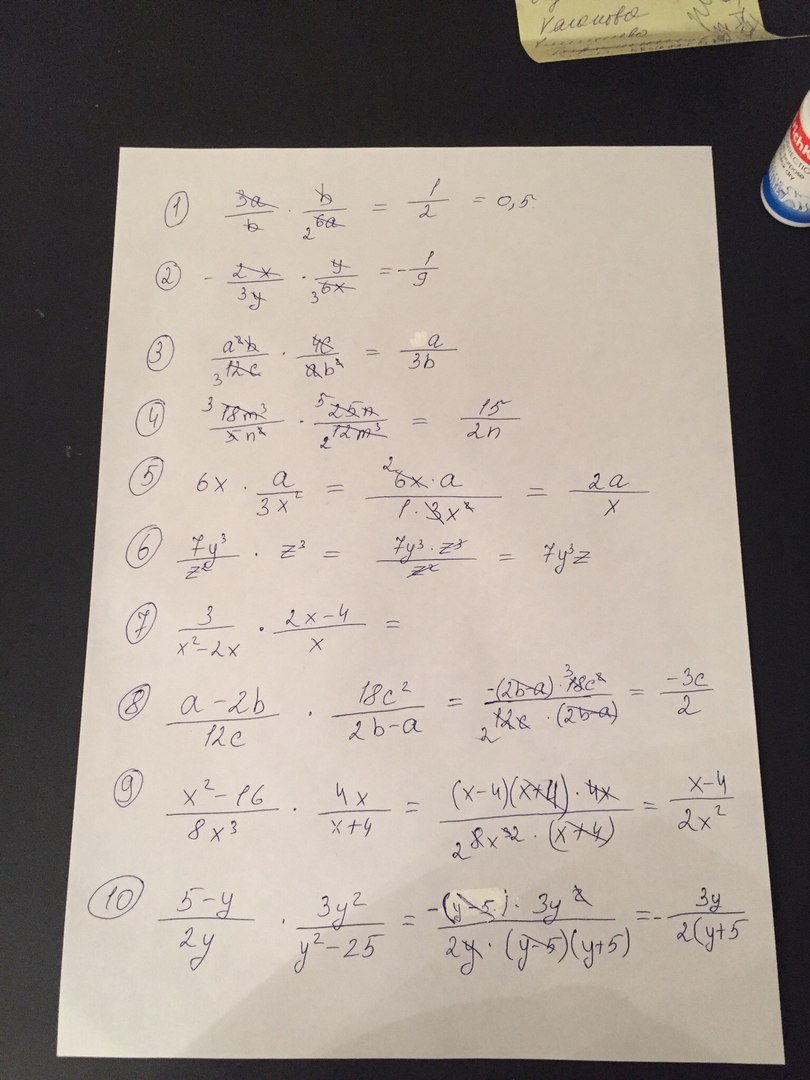 Калакова
① 3a/b · b/2 6a = 1/2 = 0,5
② - 2x/3y · y/3 6x = - 1/9
③ a²b/3 12c · 4c/ab² = a/3b
④ 3 18m³/5n² · 5 25n/2 12m³ = 15/2n
⑤ 6x · a/3x² = 2 6x · a/1 · 3x² = 2a/x
⑥ 7y³/z² · z³ = 7y³ · z³/z² = 7y³z
⑦ 3/x²-2x · 2x-4/x =
⑧ a-2b/12c · 18c²/2b-a = -(2b-a) · 3 18c²/2 12c · (2b-a) = -3c/2
⑨ x²-16/8x³ · 4x/x+4 = (x-4)(x+4) · 4x/2 8x³2 · (x+4) = x-4/2x²
⑩ 5-y/2y · 3y²/y²-25 = -(y-5) · 3y²/2y · (y-5)(y+5) = - 3y/2(y+5